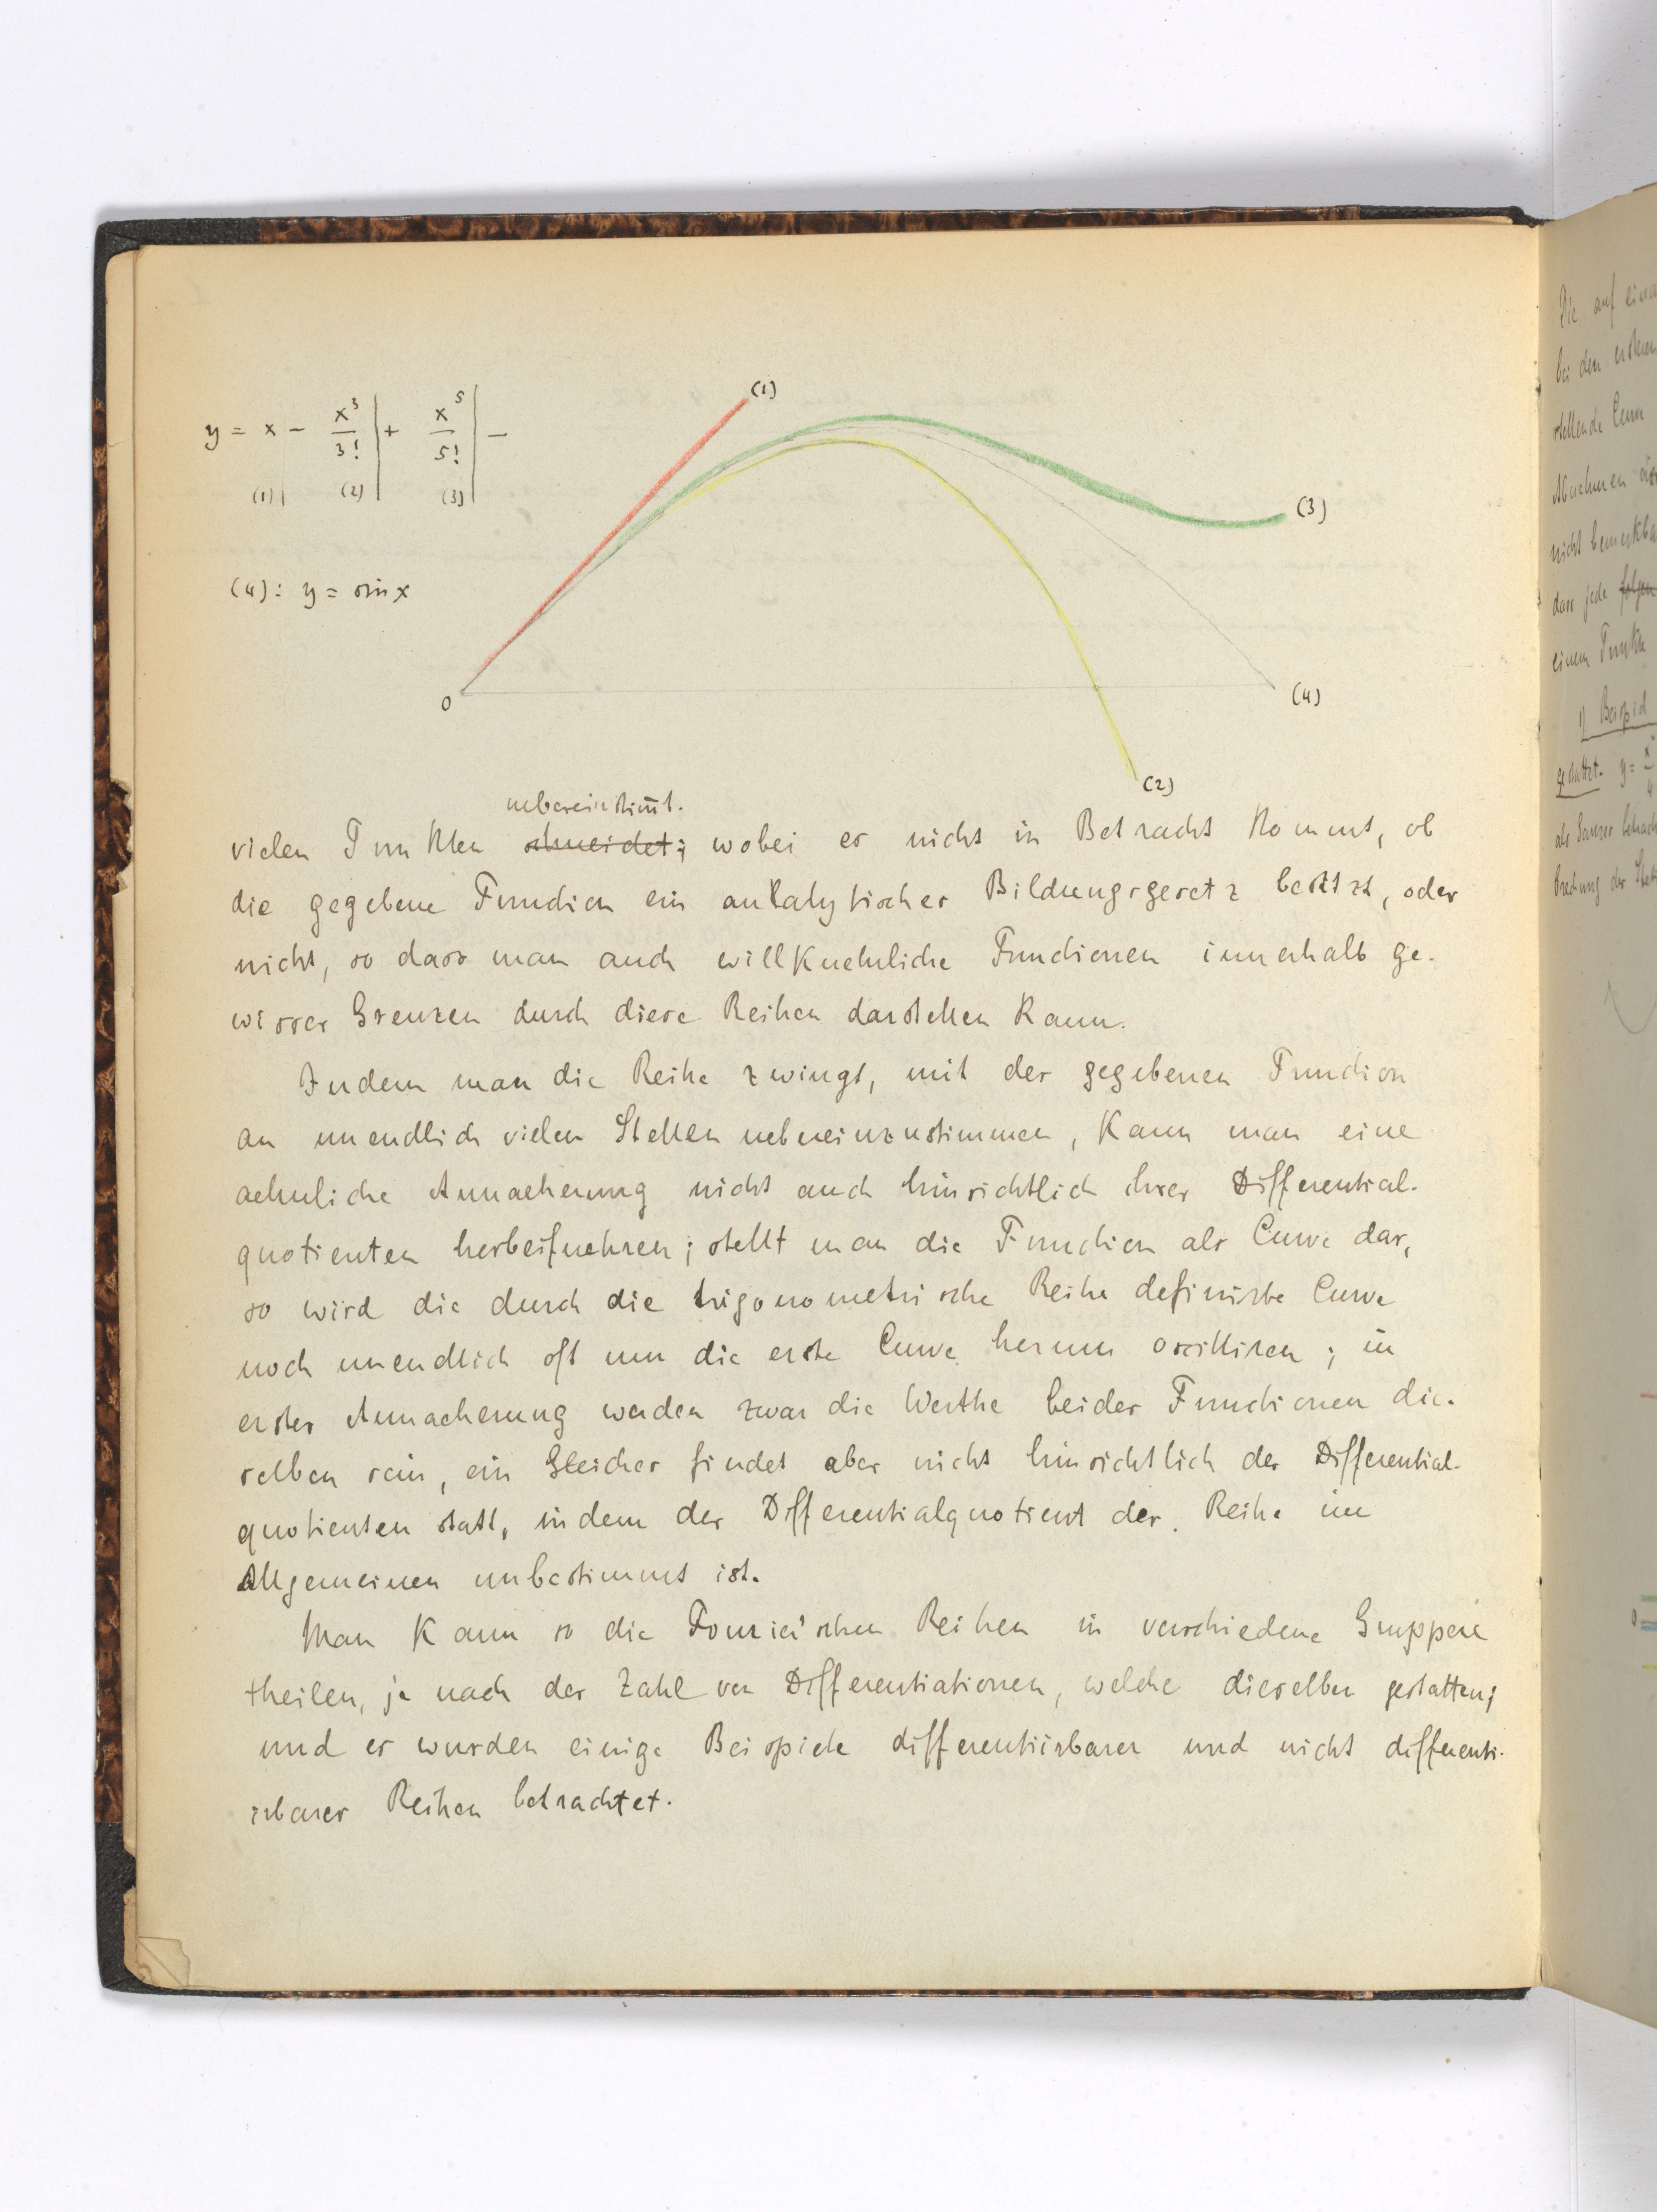 y = x - x³/3! | + x⁵/5! | -
(1) | (2) | (3) |
(4): y = sin x
(1)
(3)
0
(4)
(2)
uebereinstim̄t.
vielen Punkten schneidet; wobei es nicht in Betracht kommt, ob
die gegebene Function ein analytisches Bildungsgesetz besitzt, oder
nicht, so dass man auch willkuehrliche Functionen innerhalb ge-
wisser Grenzen durch diese Reihen darstellen kann.
Indem man die Reihe zwingt, mit der gegebenen Function
an unendlich vielen Stellen uebereinzustimmen, kann man eine
aehnliche Annaeherung nicht auch hinsichtlich ihrer Differential-
quotienten herbeifuehren; stellt man die Function als Curve dar,
so wird die durch die trigonometrische Reihe definirte Curve
noch unendlich oft um die erste Curve herum oscilliren; in
erster Annaeherung werden zwar die Werthe beider Functionen die-
selben sein, ein Gleiches findet aber nicht hinsichtlich der Differential-
quotienten statt, indem der Differentialquotient der Reihe im
Allgemeinen unbestimmt ist.
Man kann so die Fourier'schen Reihen in verschiedene Gruppen
theilen, je nach der Zahl von Differentiationen, welche dieselben gestatten;
und es wurden einige Beispiele differentiirbarer und nicht differenti-
irbarer Reihen betrachtet.
Die auf
bei den ersteren
stellende Curve
Abnehmen
nicht bemerkba
dass jede folgen
einem Punkte
1) Beispiel
gestattet. y =
als Ganzes betrach
brechung der Steti